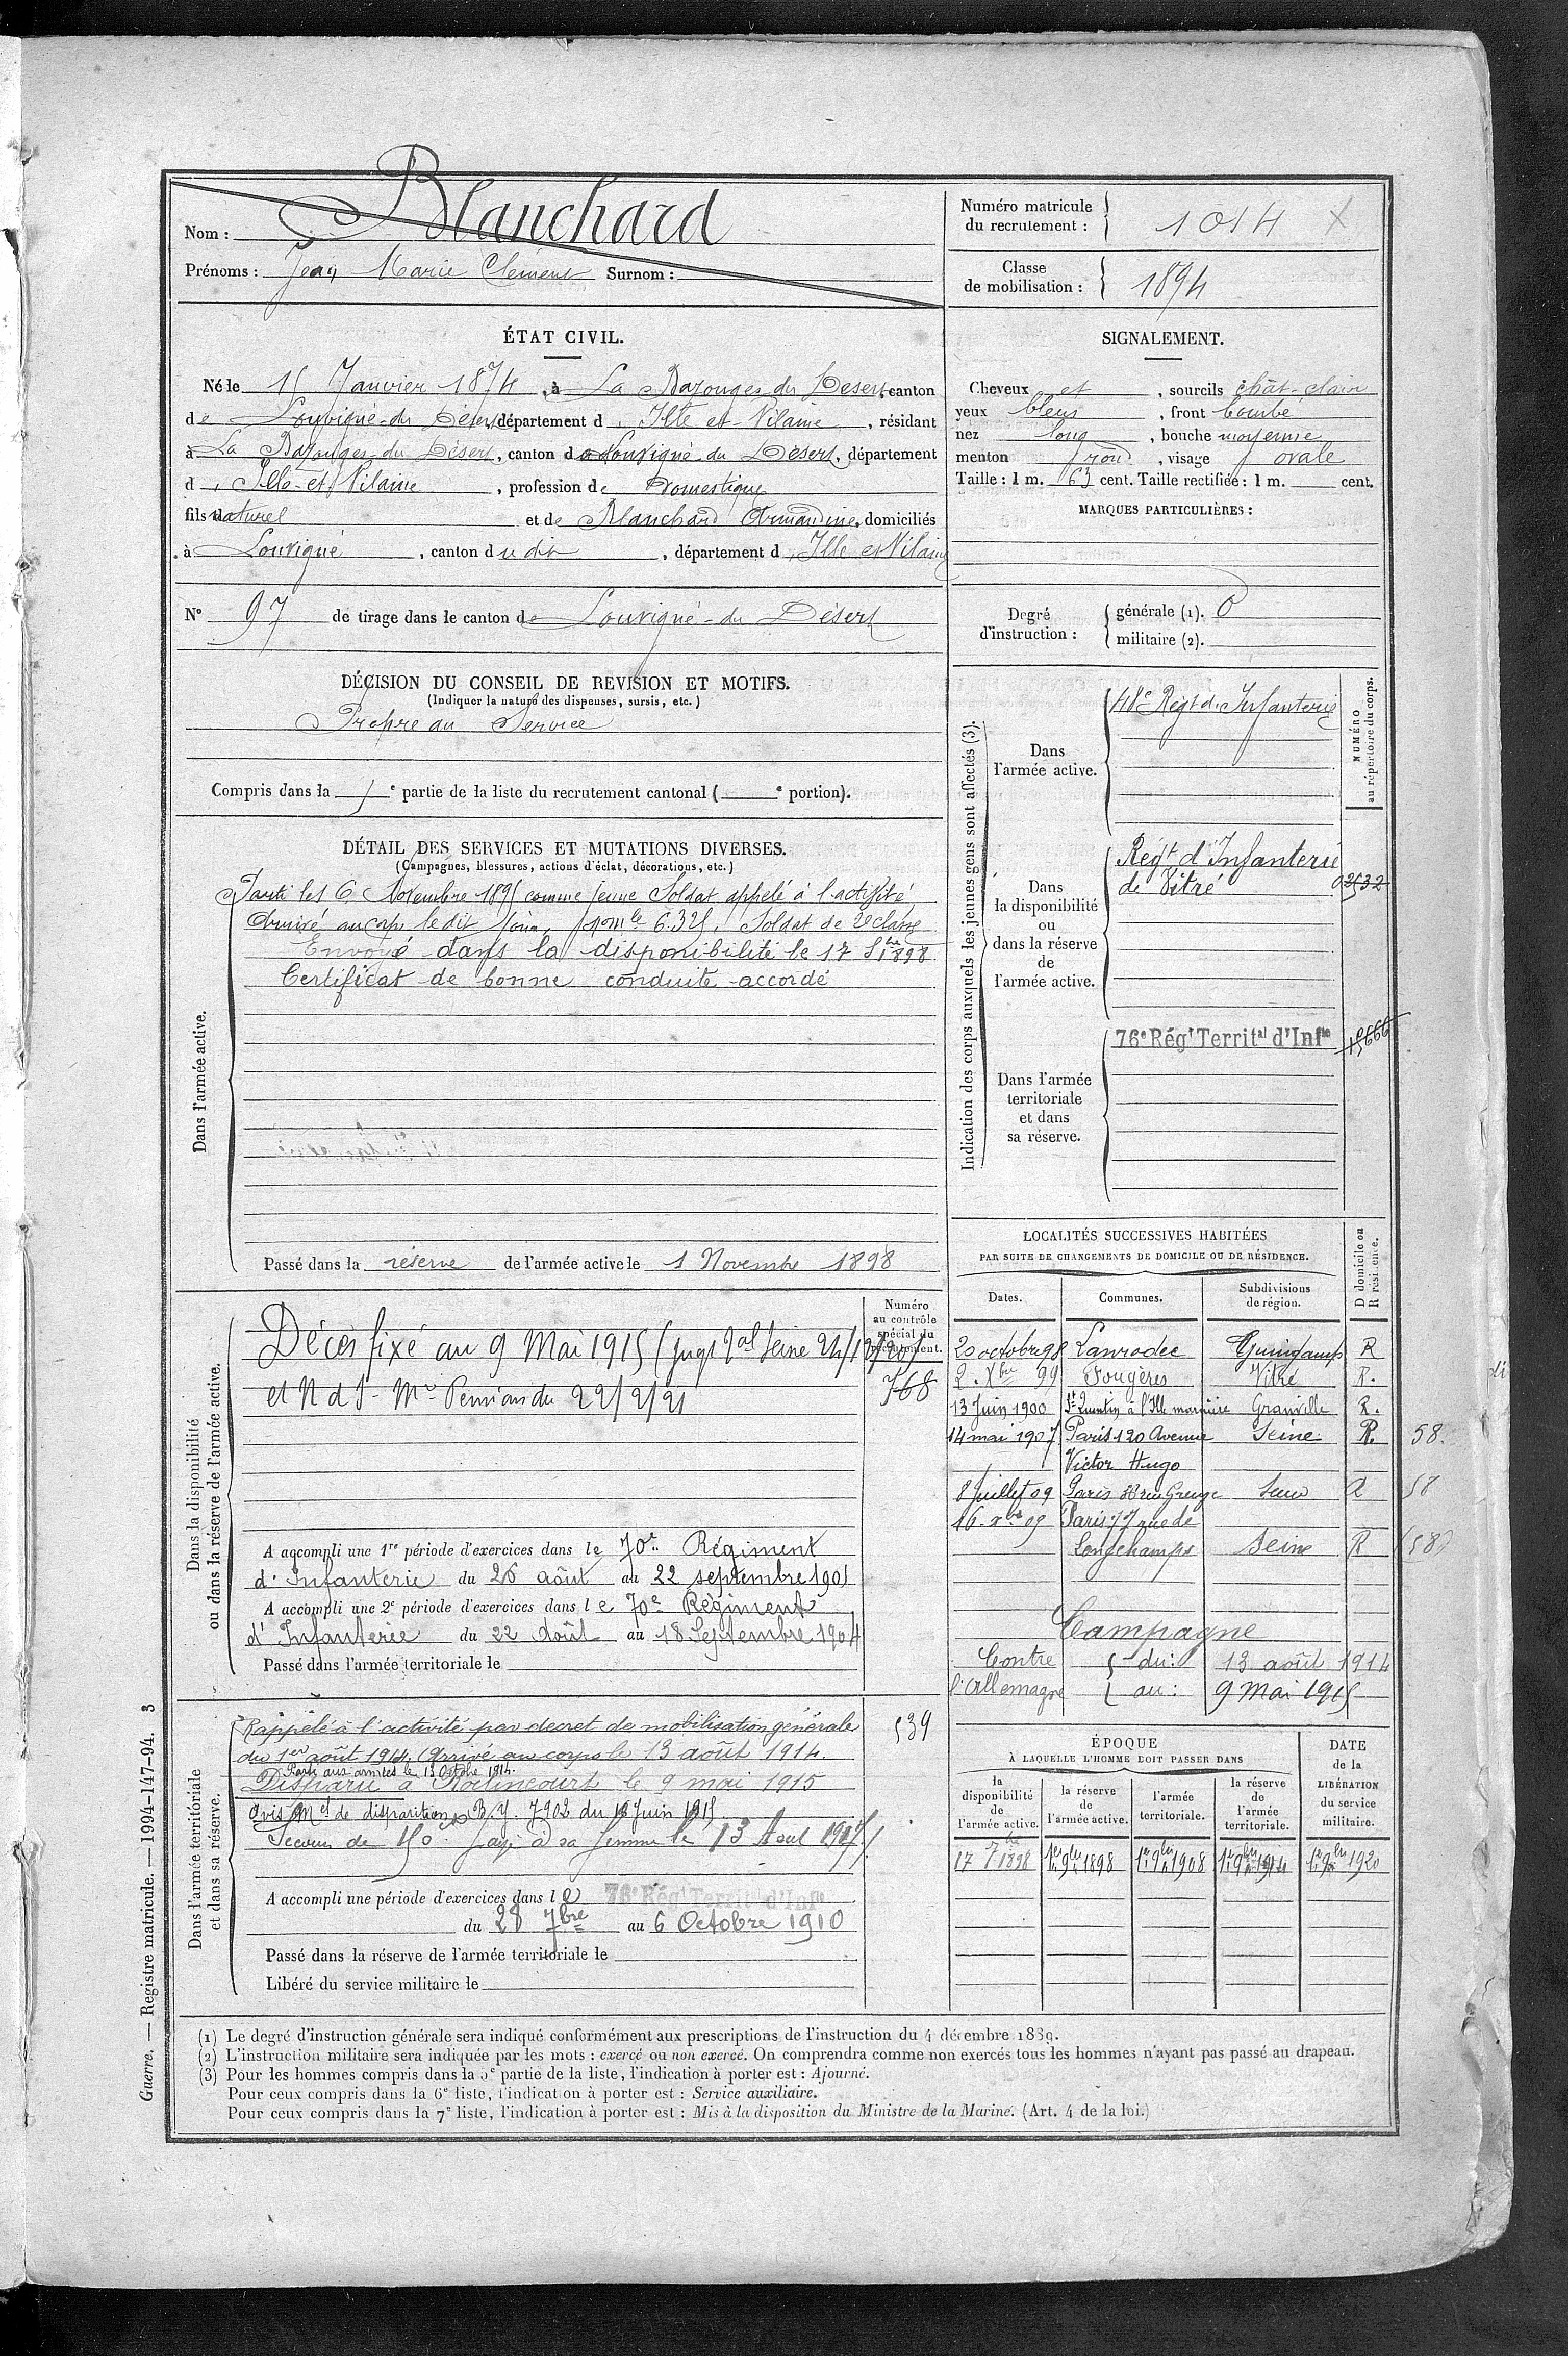 Nom : Blanchard
Prénoms : Jean Marie Clément Surnom :
Numéro matricule du recrutement : 1014
Classe de mobilisation : 1894
ÉTAT CIVIL.
Né le 15 Janvier 1874, à La Bazouges du Desert, canton
de Louvigné-du Désert, département d'Ille et-Vilaine, résidant
à La Bazouges du Désert, canton de Louvigné du Désert, département
d'Ille-et-Vilaine, profession de Domestique
fils naturel et de Blanchard Armandine, domiciliés
à Louvigné, canton du dit, département d'Ille et Vilaine
N° 97 de tirage dans le canton de Louvigné-du Désert
SIGNALEMENT.
Cheveux et, sourcils chât-clair
yeux bleus, front bombé
nez long, bouche moyenne
menton rond, visage ovale
Taille : 1 m. 63 cent. Taille rectifiée : 1 m. cent.
MARQUES PARTICULIÈRES :
Degré d'instruction :
générale (1). 0
militaire (2).
DÉCISION DU CONSEIL DE REVISION ET MOTIFS.
(Indiquer la nature des dispenses, sursis, etc.)
Propre au Service
Compris dans la 1e partie de la liste du recrutement cantonal ( e portion).
DÉTAIL DES SERVICES ET MUTATIONS DIVERSES.
(Campagnes, blessures, actions d'éclat, décorations, etc.)
Dans l'armée active.
Novembre 1895 comme jeune Soldat appelé à l'activité
Arrivé au corps le dit jour, 6.325, Soldat de 2e classe
Envoyé dans la disponibilité le 17 1898
Certificat de bonne conduite accordé
Passé dans la réserve de l'armée active le 1 Novembre 1898
Indication des corps auxquels les jeunes gens sont affectés (3).
NUMÉRO au répertoire du corps.
Dans l'armée active.
48e Régt d'Infanterie
Dans la disponibilité ou dans la réserve de l'armée active.
Régt d'Infanterie
de Vitré
02532
Dans l'armée territoriale et dans sa réserve.
76e Régt Territal d'Infie
15666
LOCALITÉS SUCCESSIVES HABITÉES
PAR SUITE DE CHANGEMENTS DE DOMICILE OU DE RÉSIDENCE.
Dates. Communes. Subdivisions de région. D domicile ou R résidence.
20 octobre 98 Lanrodec Guingamp R
2. Xbre 99 Fougères Vitré R.
13 Juin 1900 St Quentin Granville R.
14 mai 1907 Paris 120 Avenue Seine R. 58.
Victor Hugo
8 Juillet 09 Paris rue Greuze Seine 58
16. Xbre 09 Paris 77 rue de
Longchamps Seine R (58)
Campagne
Contre l'Allemagne
du : 13 août 1914
au : 9 Mai 1915
Dans la disponibilité ou dans la réserve de l'armée active.
Numéro au contrôle spécial du recrutement.
Décès fixé au 9 Mai 1915 (Jugt Seine
768
Pension du 22/2/21
A accompli une 1re période d'exercices dans le 70e Régiment
d'Infanterie du 26 août au 22 septembre 1901
A accompli une 2e période d'exercices dans le 70e Régiment
d'Infanterie du 22 Août au 18 Septembre 1904
Passé dans l'armée territoriale le
Dans l'armée territoriale et dans sa réserve.
539
Rappelé à l'activité par décret de mobilisation générale
du 1er août 1914. Arrivé au corps le 13 août 1914.
Parti aux armées le 13 Octobre 1914.
Disparu à Roclincourt le 9 mai 1915
Avis Mel de disparition B.Y. 7902 du Juin 1915.
Secours de 150 payé à sa femme le 13 Aout
A accompli une période d'exercices dans le 76e Régt Territal d'Infie
du 28 7bre au 6 Octobre 1910
Passé dans la réserve de l'armée territoriale le
Libéré du service militaire le
ÉPOQUE
À LAQUELLE L'HOMME DOIT PASSER DANS
la disponibilité de l'armée active.
la réserve de l'armée active.
l'armée territoriale.
la réserve de l'armée territoriale.
DATE de la LIBÉRATION du service militaire.
17 7bre 1898 1er 9bre 1898 1er 9bre 1908 1er 9bre 1914 1er 9bre 1920
(1) Le degré d'instruction générale sera indiqué conformément aux prescriptions de l'instruction du 4 décembre 1889.
(2) L'instruction militaire sera indiquée par les mots : exercé ou non exercé. On comprendra comme non exercés tous les hommes n'ayant pas passé au drapeau.
(3) Pour les hommes compris dans la 5e partie de la liste, l'indication à porter est : Ajourné.
Pour ceux compris dans la 6e liste, l'indication à porter est : Service auxiliaire.
Pour ceux compris dans la 7e liste, l'indication à porter est : Mis à la disposition du Ministre de la Marine. (Art. 4 de la loi.)
Guerre. — Registre matricule. — 1994-147-94. 3